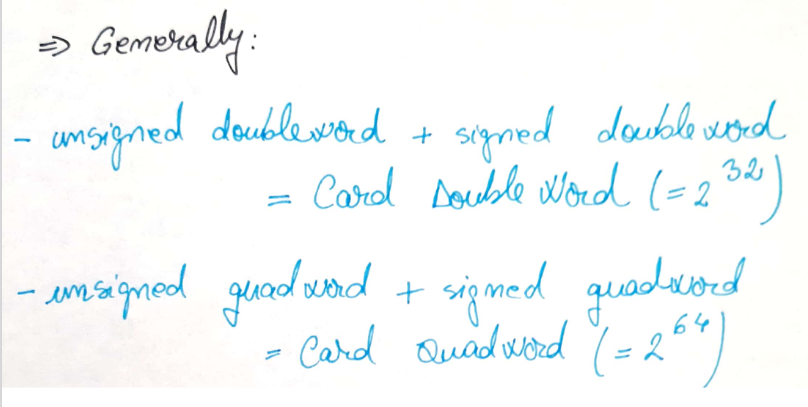 => Generally:
- unsigned doubleword + signed doubleword
= Card Double Word (= 2^32)
- unsigned quadword + signed quadword
= Card Quadword (= 2^64)